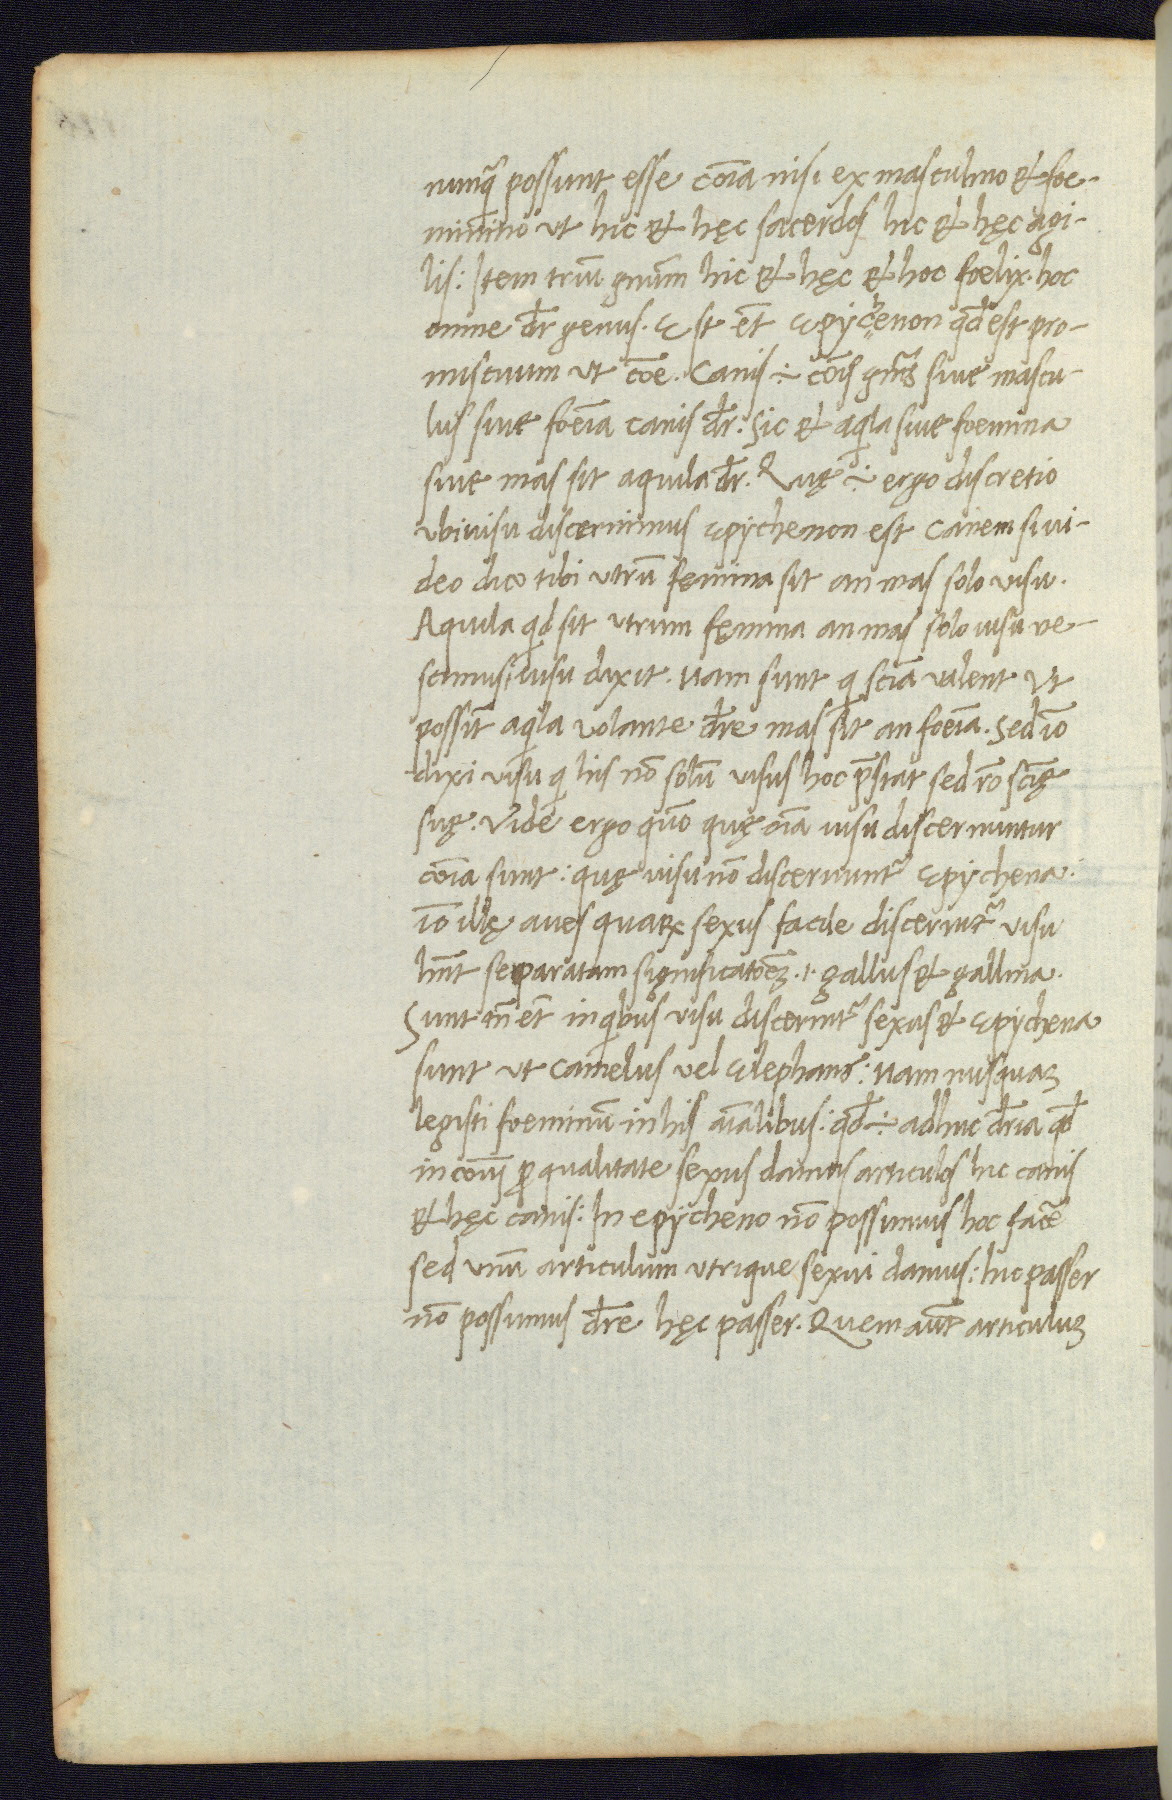 nunq̃ possunt esse cõia nisi ex masculino & foe-
minino ut hic & hęc sacerdos hic & hęc agi-
lis: Item triũ gnũm hic & hęc & hoc foelix. hoc
omne dr̃ genus. Est et̃ epycħenon qđ est pro-
miscuum ut cõe. Canis ÷ cõis gñis siue mascu-
lus siue foẽia canis dr̃: Sic & aqla siue foemina
siue mas sit aquila dr̃. Quę ÷ ergo discretio
ubi uisu discernimus epychenon est canem si ui-
deo dico tibi utrũ femina sit an mas solo uisu.
Aquila qd sit utrum fęmina an mas solo uisu ne-
scimus: uisu dixit. Nam sunt q sciã ualent ut
possint̃ aqla uolante dr̃e mas sit an foẽia. Sed iõ
dixi uisu q his nõ solũ uisus hoc p̃stat sed rõ sciẽ
suę. Vide ergo quõ quę oĩa uisu discernuntur
cõia sunt: quę uisu nõ discernunt᷑ epychena.
iõ illę aues quarꝝ sexus facile discernit᷑ uisu
hñt separatam significatõeꝫ .i. gallus & gallina.
Sunt tñ et̃ in qbus uisu discernit᷑ sexus & epychena
sunt ut camelus uel elephans: Nam nusquaꝫ
legisti foeminũ in his aĩalibus: qđ ÷ adhuc dr̃ia qđ
in cõni p̱ qualitate sexus damus articulos hic canis
& hęc canis: In epycheno nõ possumus hoc facẽ
sed unũ articulum utrique sexui damus: hic passer
nõ possumus dr̃e hęc passer. Quem aut̃ articuluꝫ